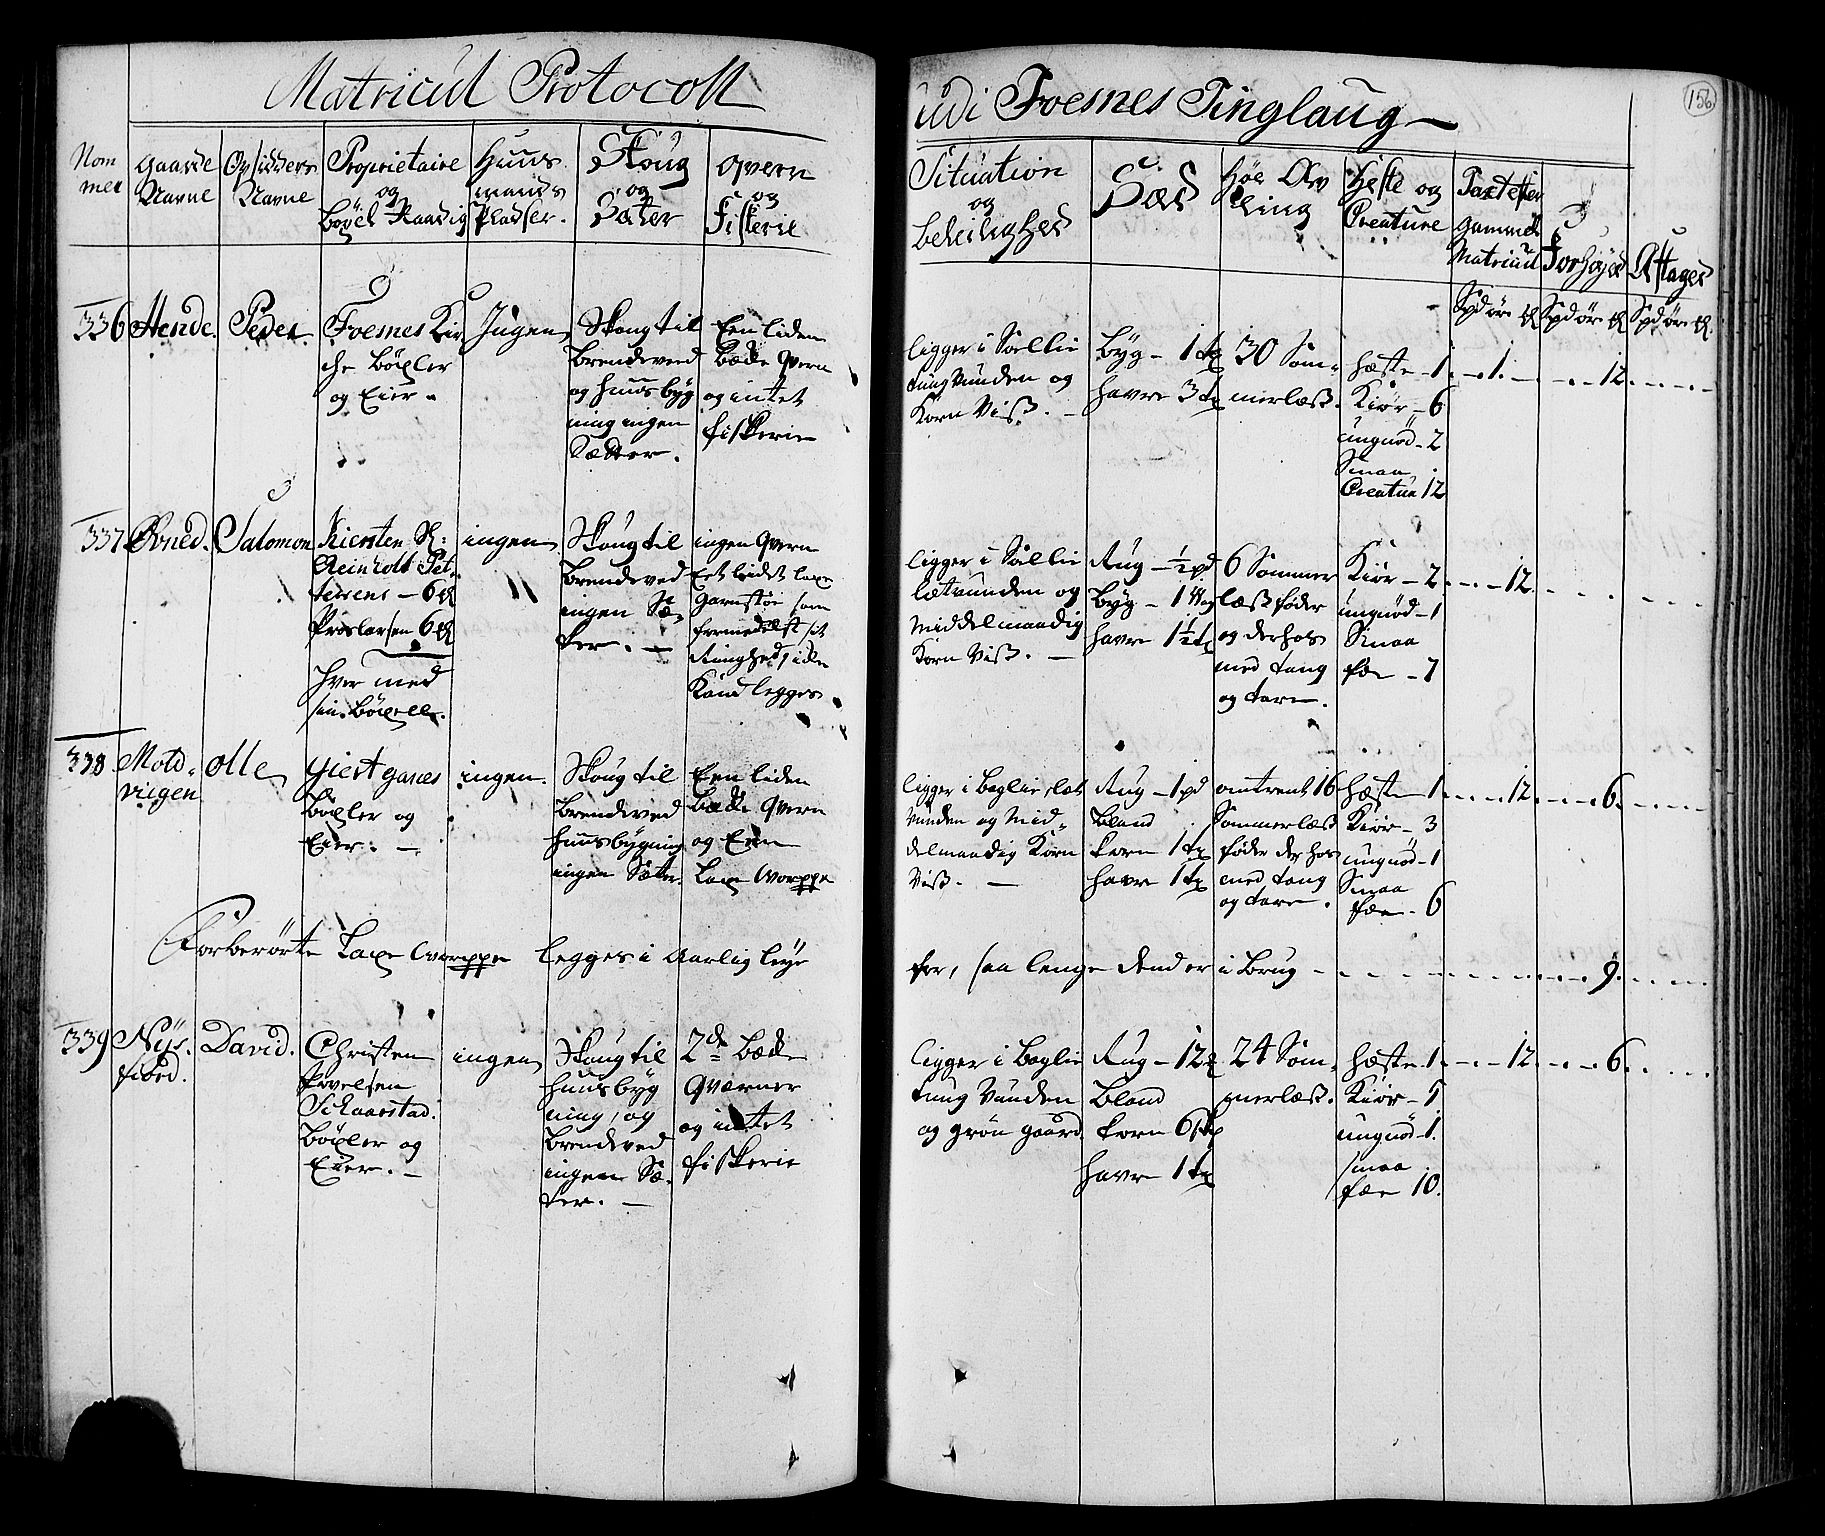 Matricul Protocoll
udi Foesnes Tinglaug
156
Nom
mer
Gaarde
Navne
Opsidders
Navne
Proprietaire
og
Böxel Raadig
Huus
mands
Pladser.
Skoug
og
Sæter
Qvern
og
Fiskerie
Situation
og
beleilighed
Sæd
Höe Av
ling
Heste og
Creature
Taxt efter
gammel
Matricul
Forhöjes
Aftages
Spd ort ß
Spd ort ß
Spd ort ß
336
Hende.
Peder
Foesnes Kir
che böxler
og Eier
Ingen
Skoug til
brendeved
og huusbyg
ning ingen
Sætter.
Een liden
bæcke qvern
og intet
fiskerie
ligger i Soellie
tungvunden og
Korn Viss.
Byg - 1 tø
havre 3 tø
30 Som
merlæss.
Hæste - 1
Kiör - 6
ungnöd - 2
Smaa
Creature 12
1
12
337
Øvned.
Salomon
Kiersten Sl:
Reinholt Pet
tersens - 6 ß
Preslersen 6 ß
hver med
sin böxell.
ingen
Skoug til
brendeved
ingen Sæ
ter.
ingen Qvern
Eet lidet laxe
garnstöe som
formedelst sit
Ringhed, icke
Kand legges
ligger i Soellie
letvunden og
middelmaadig
Korn Viss.
Rug - ½ pd
Byg - 1 Wog
havre 1½ tø
6 Sommer
læss föder
og derhos
med tang
og tare.
Kiör - 2
ungnöd - 1
Smaa
fæe - 7
12
338
Mold
viigen
Olle
Giert Ganes
Böxler og
Eier.
ingen.
Skoug til
brendeved
huusbygning
ingen Sæter.
Een liden
bæcke Qvern
og Een
Laxe Worppe
ligger i Baglie, let
vunden og Mid
delmaadig Korn
Viss.
Rug - 1 pd
bland
korn 1 tø
havre 1 tø
omtrent 16
Sommerlæss
föder derhos
med tang
og tare.
Hæste 1
Kiör - 3
ungnöd - 1
Smaa
fæe - 6
12
6
Forberørte Laxe Worppe legges i Aarlig leye
for, saa lenge dend er i Brug
9
339
Nÿs
fiord.
David.
Christen
Povelsen
Skaarstad.
Böxler og
Eier.
ingen
Skoug til
huusbyg
ning, og
brendeved
ingen Sæ
ter.
2de bæcke
qværner
og intet
fiskerie
ligger i Baglie
tungvunden
og grön gaard
Rug - 12
Bland
korn 6
havre 1 tø
24 Som
merlæss.
Hæste 1
Kiör - 5
ungnöd - 1.
smaa
fæe 10.
12
6